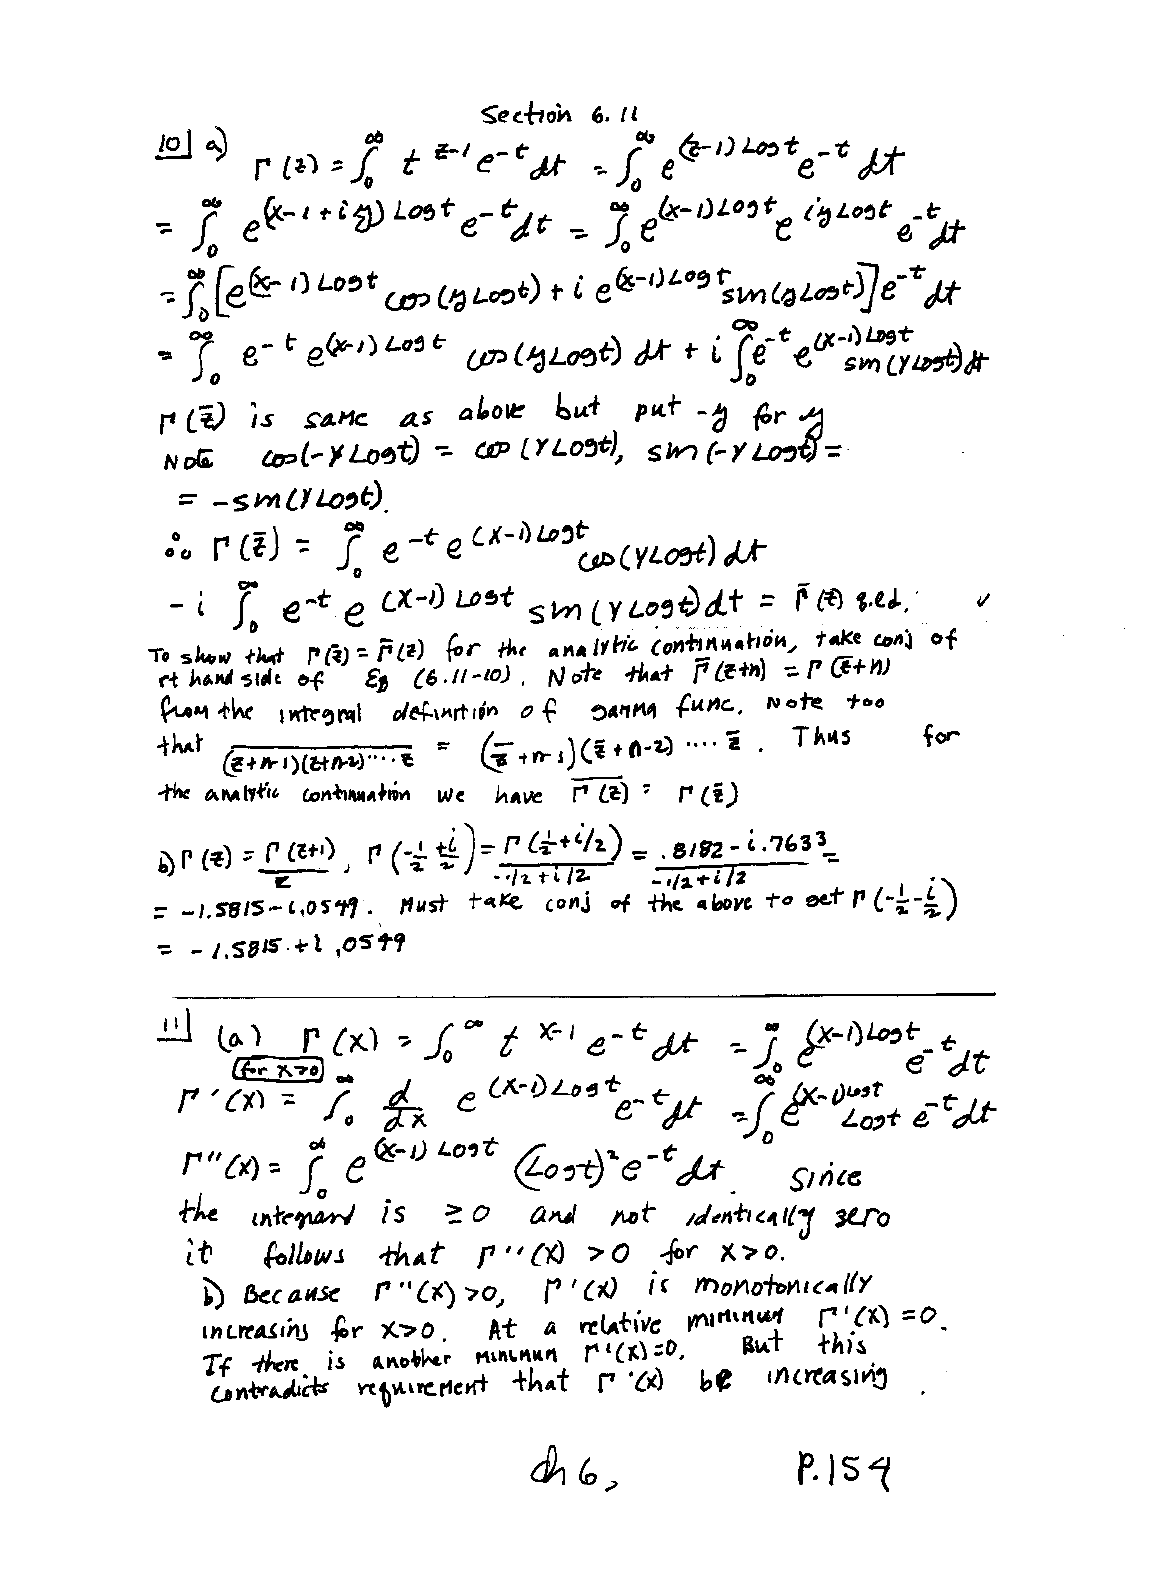 Section 6.11
10] a) Γ(z) = ∫₀^∞ t^(z-1) e^(-t) dt = ∫₀^∞ e^((z-1) Log t) e^(-t) dt
= ∫₀^∞ e^((x-1+iy) Log t) e^(-t) dt = ∫₀^∞ e^((x-1) Log t) e^(iy Log t) e^(-t) dt
= ∫₀^∞ [e^((x-1) Log t) cos(y Log t) + i e^((x-1) Log t) sin(y Log t)] e^(-t) dt
= ∫₀^∞ e^(-t) e^((x-1) Log t) cos(y Log t) dt + i ∫₀^∞ e^(-t) e^((x-1) Log t) sin(y Log t) dt
Γ(z̄) is same as above but put -y for y
Note cos(-y Log t) = cos(y Log t), sin(-y Log t) =
= -sin(y Log t).
∴ Γ(z̄) = ∫₀^∞ e^(-t) e^((x-1) Log t) cos(y Log t) dt
- i ∫₀^∞ e^(-t) e^((x-1) Log t) sin(y Log t) dt = Γ̄(z) q.e.d. ✓
To show that Γ(z̄) = Γ̄(z) for the analytic continuation, take conj of
rt hand side of Eq (6.11-10). Note that Γ̄(z+n) = Γ(z̄+n)
from the integral definition of gamma func. Note too
that \overline{(z+n-1)(z+n-2)····z} = (z̄+n-1)(z̄+n-2)····z̄. Thus for
the analytic continuation we have \overline{Γ(z)} = Γ(z̄)
b) Γ(z) = Γ(z+1)/z, Γ(-1/2 + i/2) = Γ(1/2 + i/2)/(-1/2 + i/2) = (.8182 - i.7633)/(-1/2 + i/2) =
= -1.5815 - i.0549. Must take conj of the above to get Γ(-1/2 - i/2)
= -1.5815 + i .0549
11] (a) Γ(x) = ∫₀^∞ t^(x-1) e^(-t) dt = ∫₀^∞ e^((x-1) Log t) e^(-t) dt
for x>0
Γ'(x) = ∫₀^∞ d/dx e^((x-1) Log t) e^(-t) dt = ∫₀^∞ e^((x-1) Log t) Log t e^(-t) dt
Γ''(x) = ∫₀^∞ e^((x-1) Log t) (Log t)² e^(-t) dt. Since
the integrand is ≥ 0 and not identically zero
it follows that Γ''(x) > 0 for x>0.
b) Because Γ''(x) >0, Γ'(x) is monotonically
increasing for x>0. At a relative minimum Γ'(x) = 0.
If there is another minimum Γ'(x)=0. But this
contradicts requirement that Γ'(x) be increasing.
ch 6, P.154